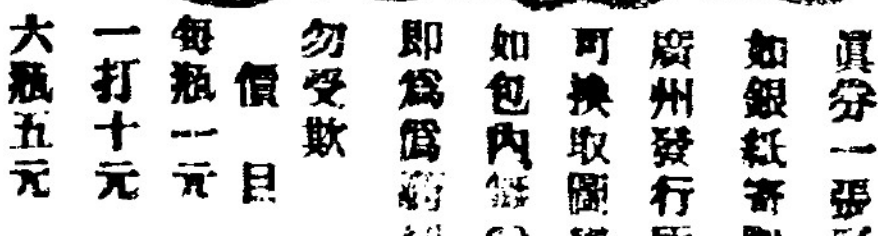 眞分一張
如銀紙寄
廣州發行
可換取圖
如包內
即爲僞
勿受欺
價目
每瓶一元
一打十元
六瓶五元